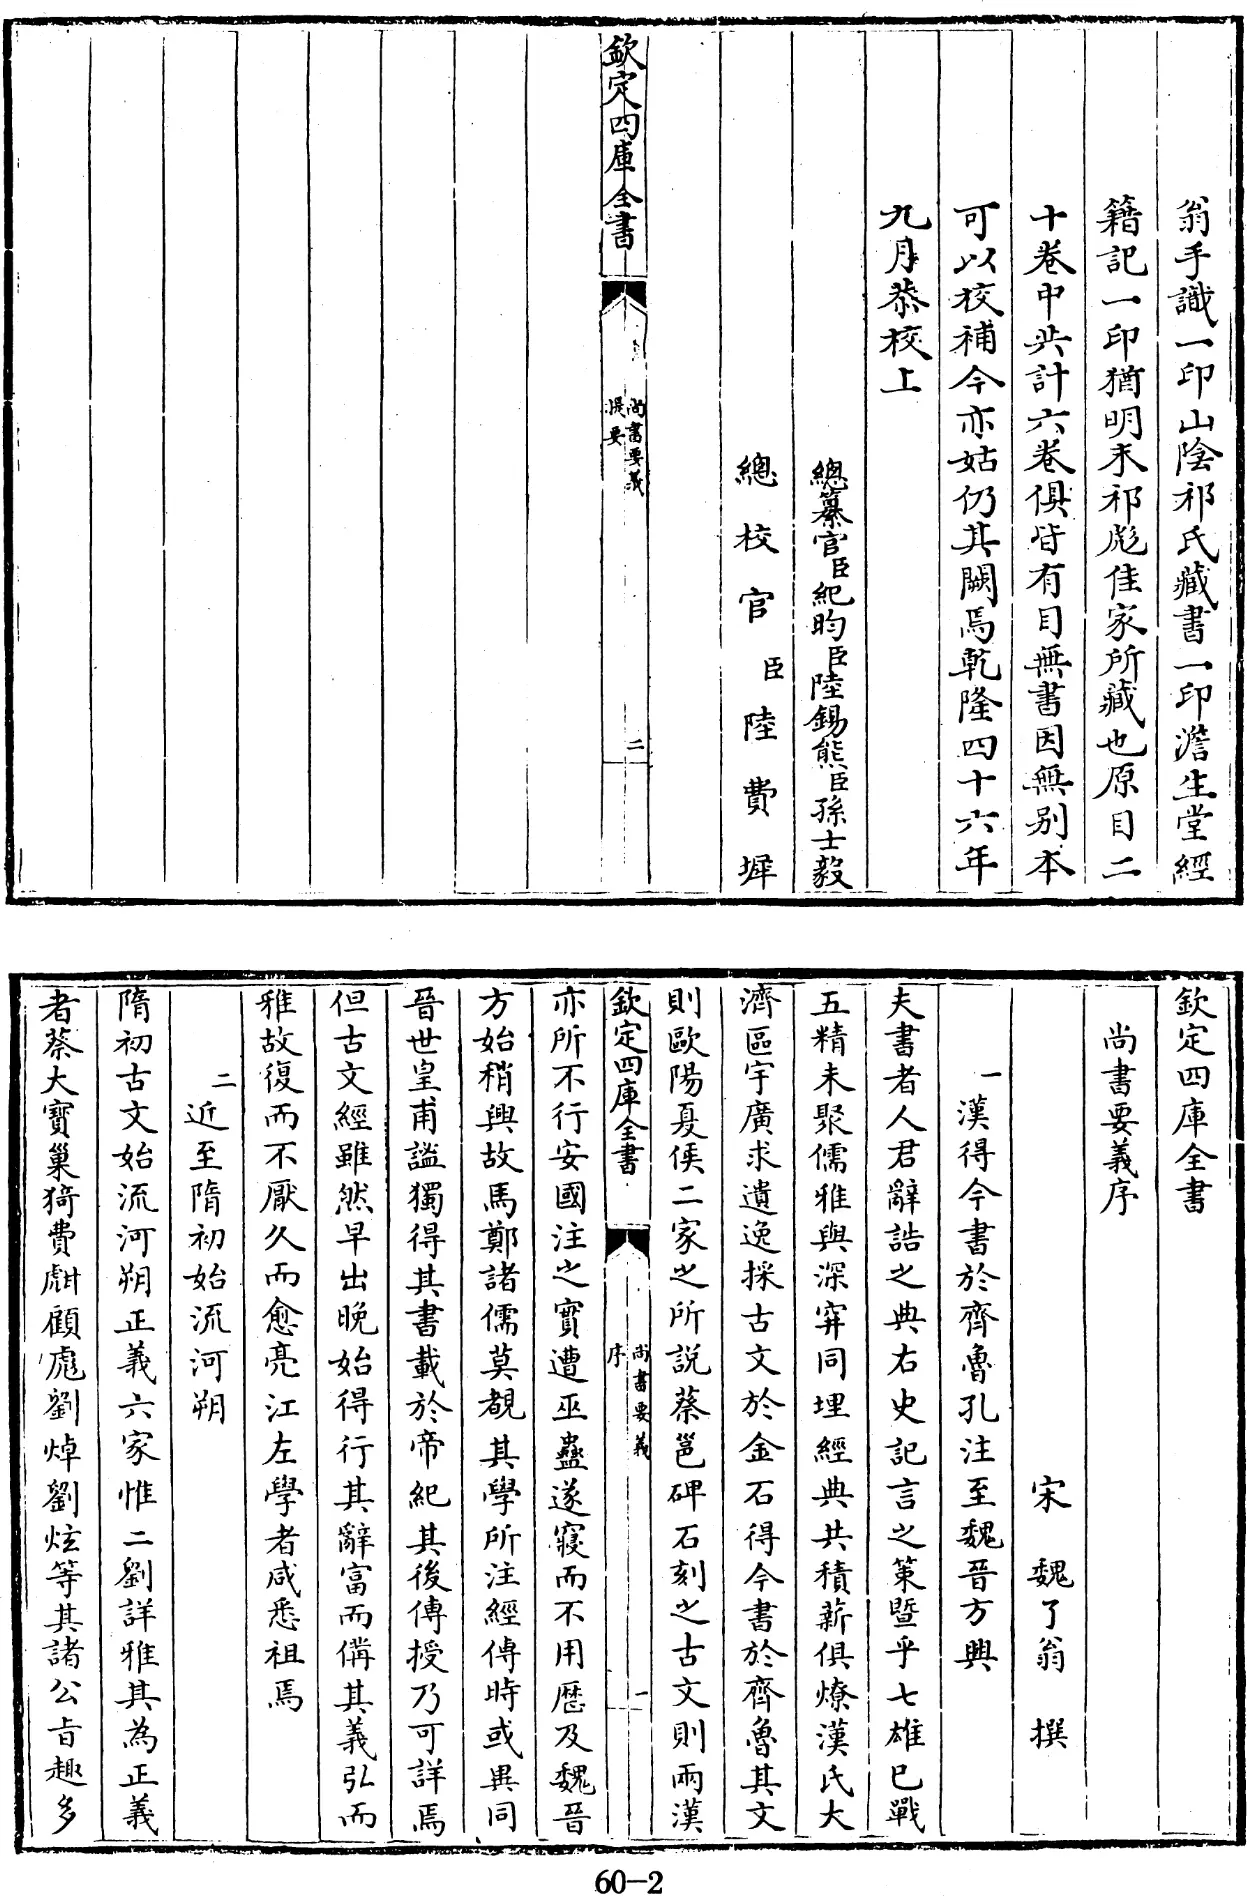 翁手識一印山陰祁氏藏書一印澹生堂經
籍記一印猶明末祁彪佳家所藏也原目二
十卷中共計六卷俱皆有目無書因無别本
可以校補今亦姑仍其闕焉乾隆四十六年
九月恭校上
總纂官臣紀昀臣陸錫熊臣孫士毅
總校官臣陸費墀
欽定四庫全書
尚書要義
提要
二
欽定四庫全書
尚書要義序
宋 魏了翁 撰
一漢得今書於齊魯孔注至魏晉方興
夫書者人君辭誥之典右史記言之策暨乎七雄已戰
五精未聚儒雅與深穽同埋經典共積薪俱燎漢氏大
濟區宇廣求遺逸採古文於金石得今書於齊魯其文
則歐陽夏侯二家之所説蔡邕碑石刻之古文則兩漢
欽定四庫全書
尚書要義
序
一
亦所不行安國注之實遭巫蠱遂寢而不用歷及魏晉
方始稍興故馬鄭諸儒莫覩其學所注經傳時或異同
晉世皇甫謐獨得其書載於帝紀其後傳授乃可詳焉
但古文經雖然早出晚始得行其辭富而備其義弘而
雅故復而不厭久而愈亮江左學者咸悉祖焉
二近至隋初始流河朔
隋初古文始流河朔正義六家惟二劉詳雅其為正義
者蔡大寶巢猗費甝顧彪劉焯劉炫等其諸公旨趣多
60-2